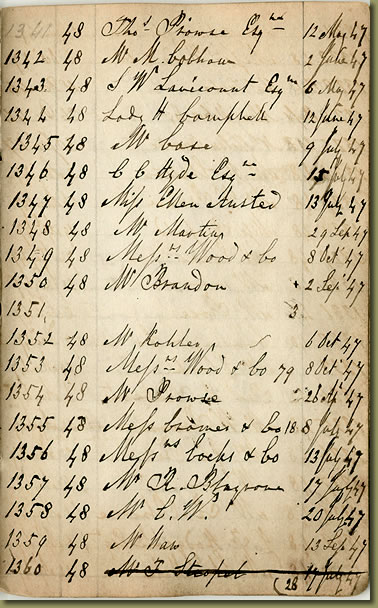 1341 48 Thos Prowse Esqre 12 May 47
1342 48 Mr M. Cobham 2 June 47
1343 48 S W Esqre 6 May 47
1344 48 Lady H Campbell 12 June 47
1345 48 Mr Case 9 July 47
1346 48 C C Hyde Esqre 15 July 47
1347 48 Miss Ellen Austed 13 July 47
1348 48 Mr Martin 29 Sep 47
1349 48 Messrs Wood & Co 8 Oct 47
1350 48 Mr Brandon + 2 Sep 47
1351 3
1352 48 Mr Kohler 6 Oct 47
1353 48 Messrs Wood & Co 79 8 Oct 47
1354 48 Mr Prowse 26 47
1355 48 Mess Cramer & Co 18 8 July 47
1356 48 Messrs Cocks & Co 13 July 47
1357 48 Mr R. Blagrove 17 July 47
1358 48 Mr C. W. 20 July 47
1359 48 Mr 13 Sep 47
1360 48 Mr T 17 July 47
(28